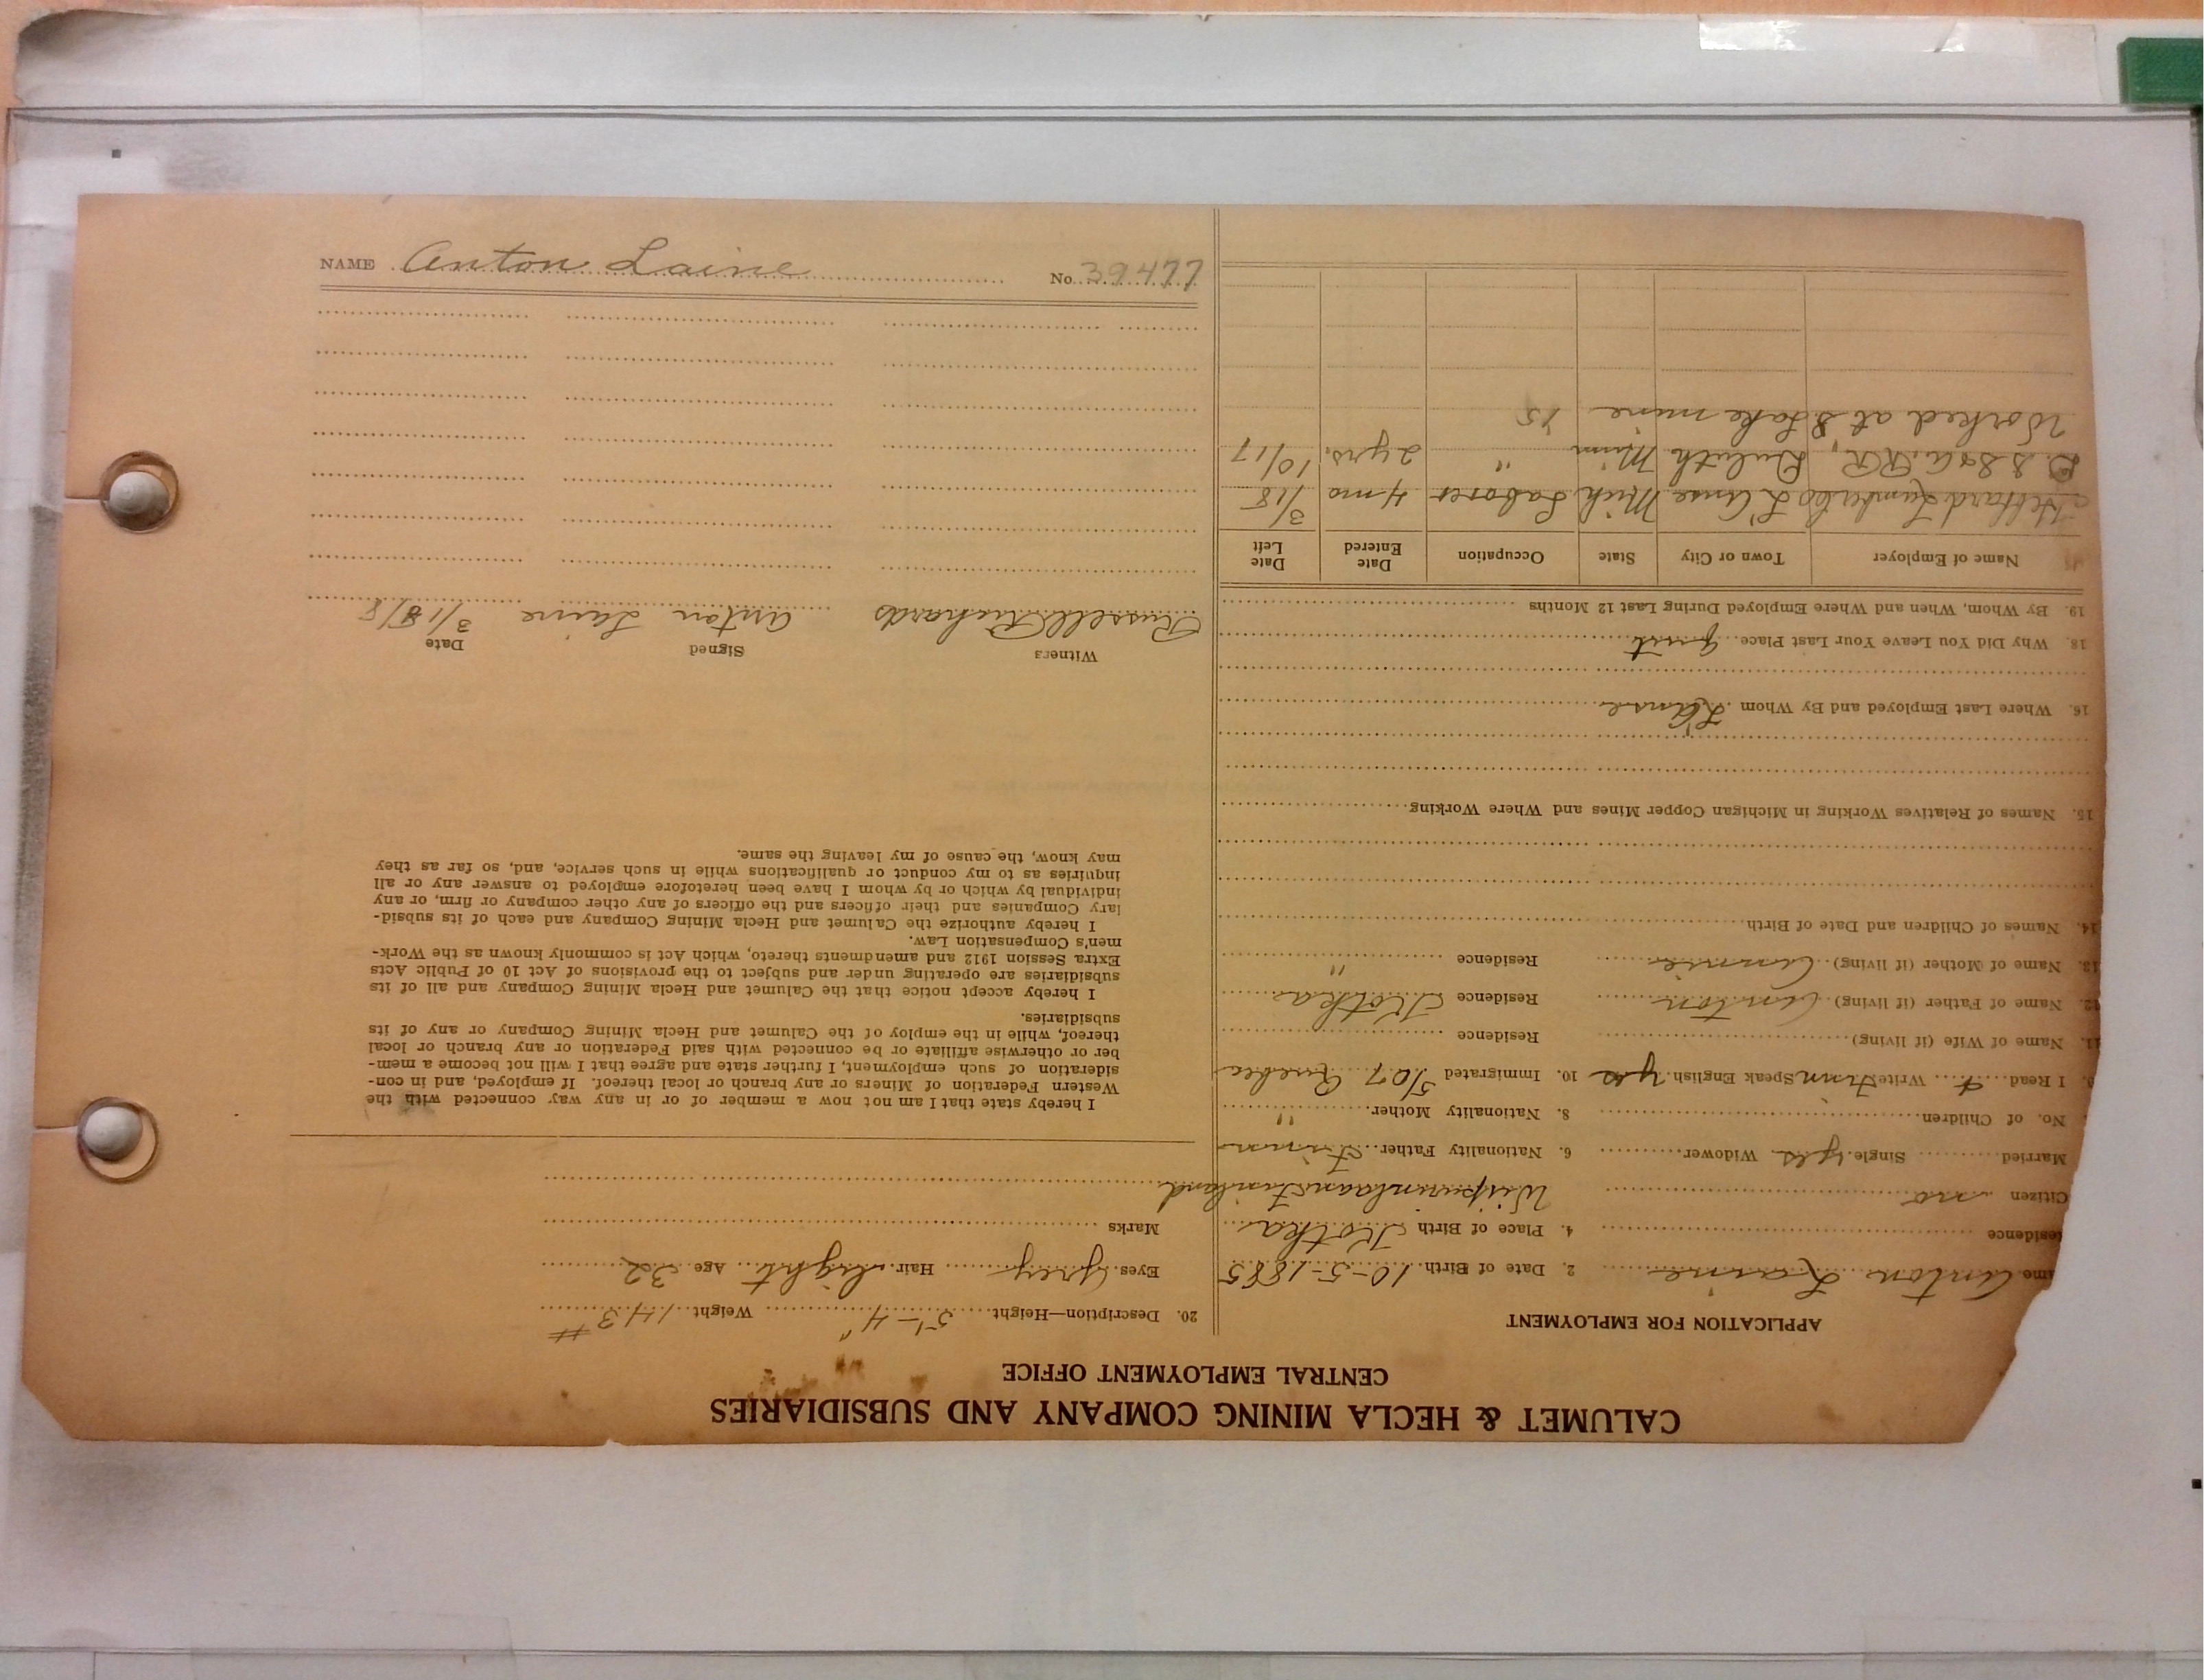 CALUMET & HECLA MINING COMPANY AND SUBSIDIARIES
CENTRAL EMPLOYMENT OFFICE
APPLICATION FOR EMPLOYMENT
ame Anton Laine 2. Date of Birth 10-5-1885
Residence 4. Place of Birth Kotka
Citizen no Wiipurinlaani Finland
Married Single yes Widower 6. Nationality Father Finn
No. of Children 8. Nationality Mother "
9. I Read + Write Finn Speak English yes 10. Immigrated 5/07 Quebec
11. Name of Wife (if living) Residence
12. Name of Father (if living) Anton Residence Kotka
13. Name of Mother (if living) Annie Residence "
14. Names of Children and Date of Birth
15. Names of Relatives Working in Michigan Copper Mines and Where Working
16. Where Last Employed and By Whom L'anse
18. Why Did You Leave Your Last Place. quit
19. By Whom, When and Where Employed During Last 12 Months
Name of Employer Town or City State Occupation Date Entered Date Left
L'Anse Mich Laborer 4 mo 3/18
D.S.S&A. RR, Duluth Minn " 2 yrs. 10/17
Worked at S Lake mine 15
20. Description—Height 5'-4" Weight 143#
Eyes Grey Hair light Age 32
Marks
I hereby state that I am not now a member of or in any way connected with the
Western Federation of Miners or any branch or local thereof. If employed, and in con-
sideration of such employment, I further state and agree that I will not become a mem-
ber or otherwise affiliate or be connected with said Federation or any branch or local
thereof, while in the employ of the Calumet and Hecla Mining Company or any of its
subsidiaries.
I hereby accept notice that the Calumet and Hecla Mining Company and all of its
subsidiaries are operating under and subject to the provisions of Act 10 of Public Acts
Extra Session 1912 and amendments thereto, which Act is commonly known as the Work-
men's Compensation Law.
I hereby authorize the Calumet and Hecla Mining Company and each of its subsid-
iary Companies and their officers and the officers of any other company or firm, or any
individual by which or by whom I have been heretofore employed to answer any or all
inquiries as to my conduct or qualifications while in such service, and, so far as they
may know, the cause of my leaving the same.
Witness Signed Date
Russell Richards Anton Laine 3/18/8
NAME Anton Laine No. 39477